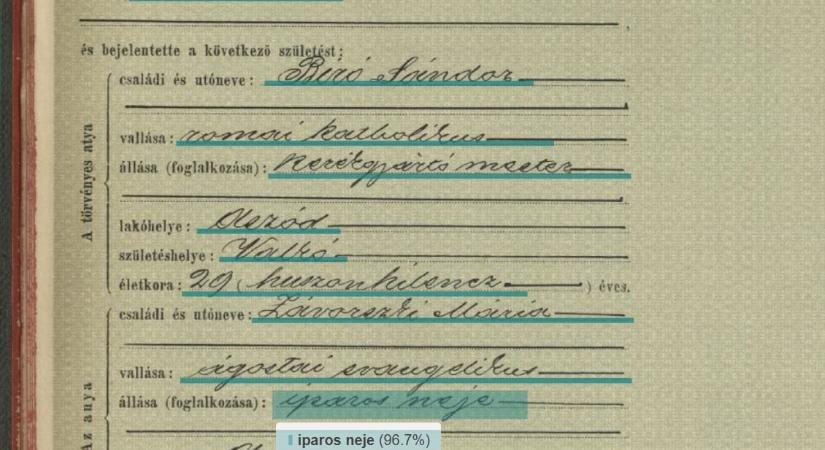 és bejelentette a következő születést:
A törvényes atya
családi és utóneve: Bíró Sándor
vallása: romai katholikus
állása (foglalkozása): kerékgyártó mester
lakóhelye: Aszód
születéshelye: Valkó
életkora: 29 (huszonkilencz) éves.
Az anya
családi és utóneve: Závorszki Mária
vallása: ágostai evangelikus
állása (foglalkozása): iparos neje
iparos neje (96.7%)